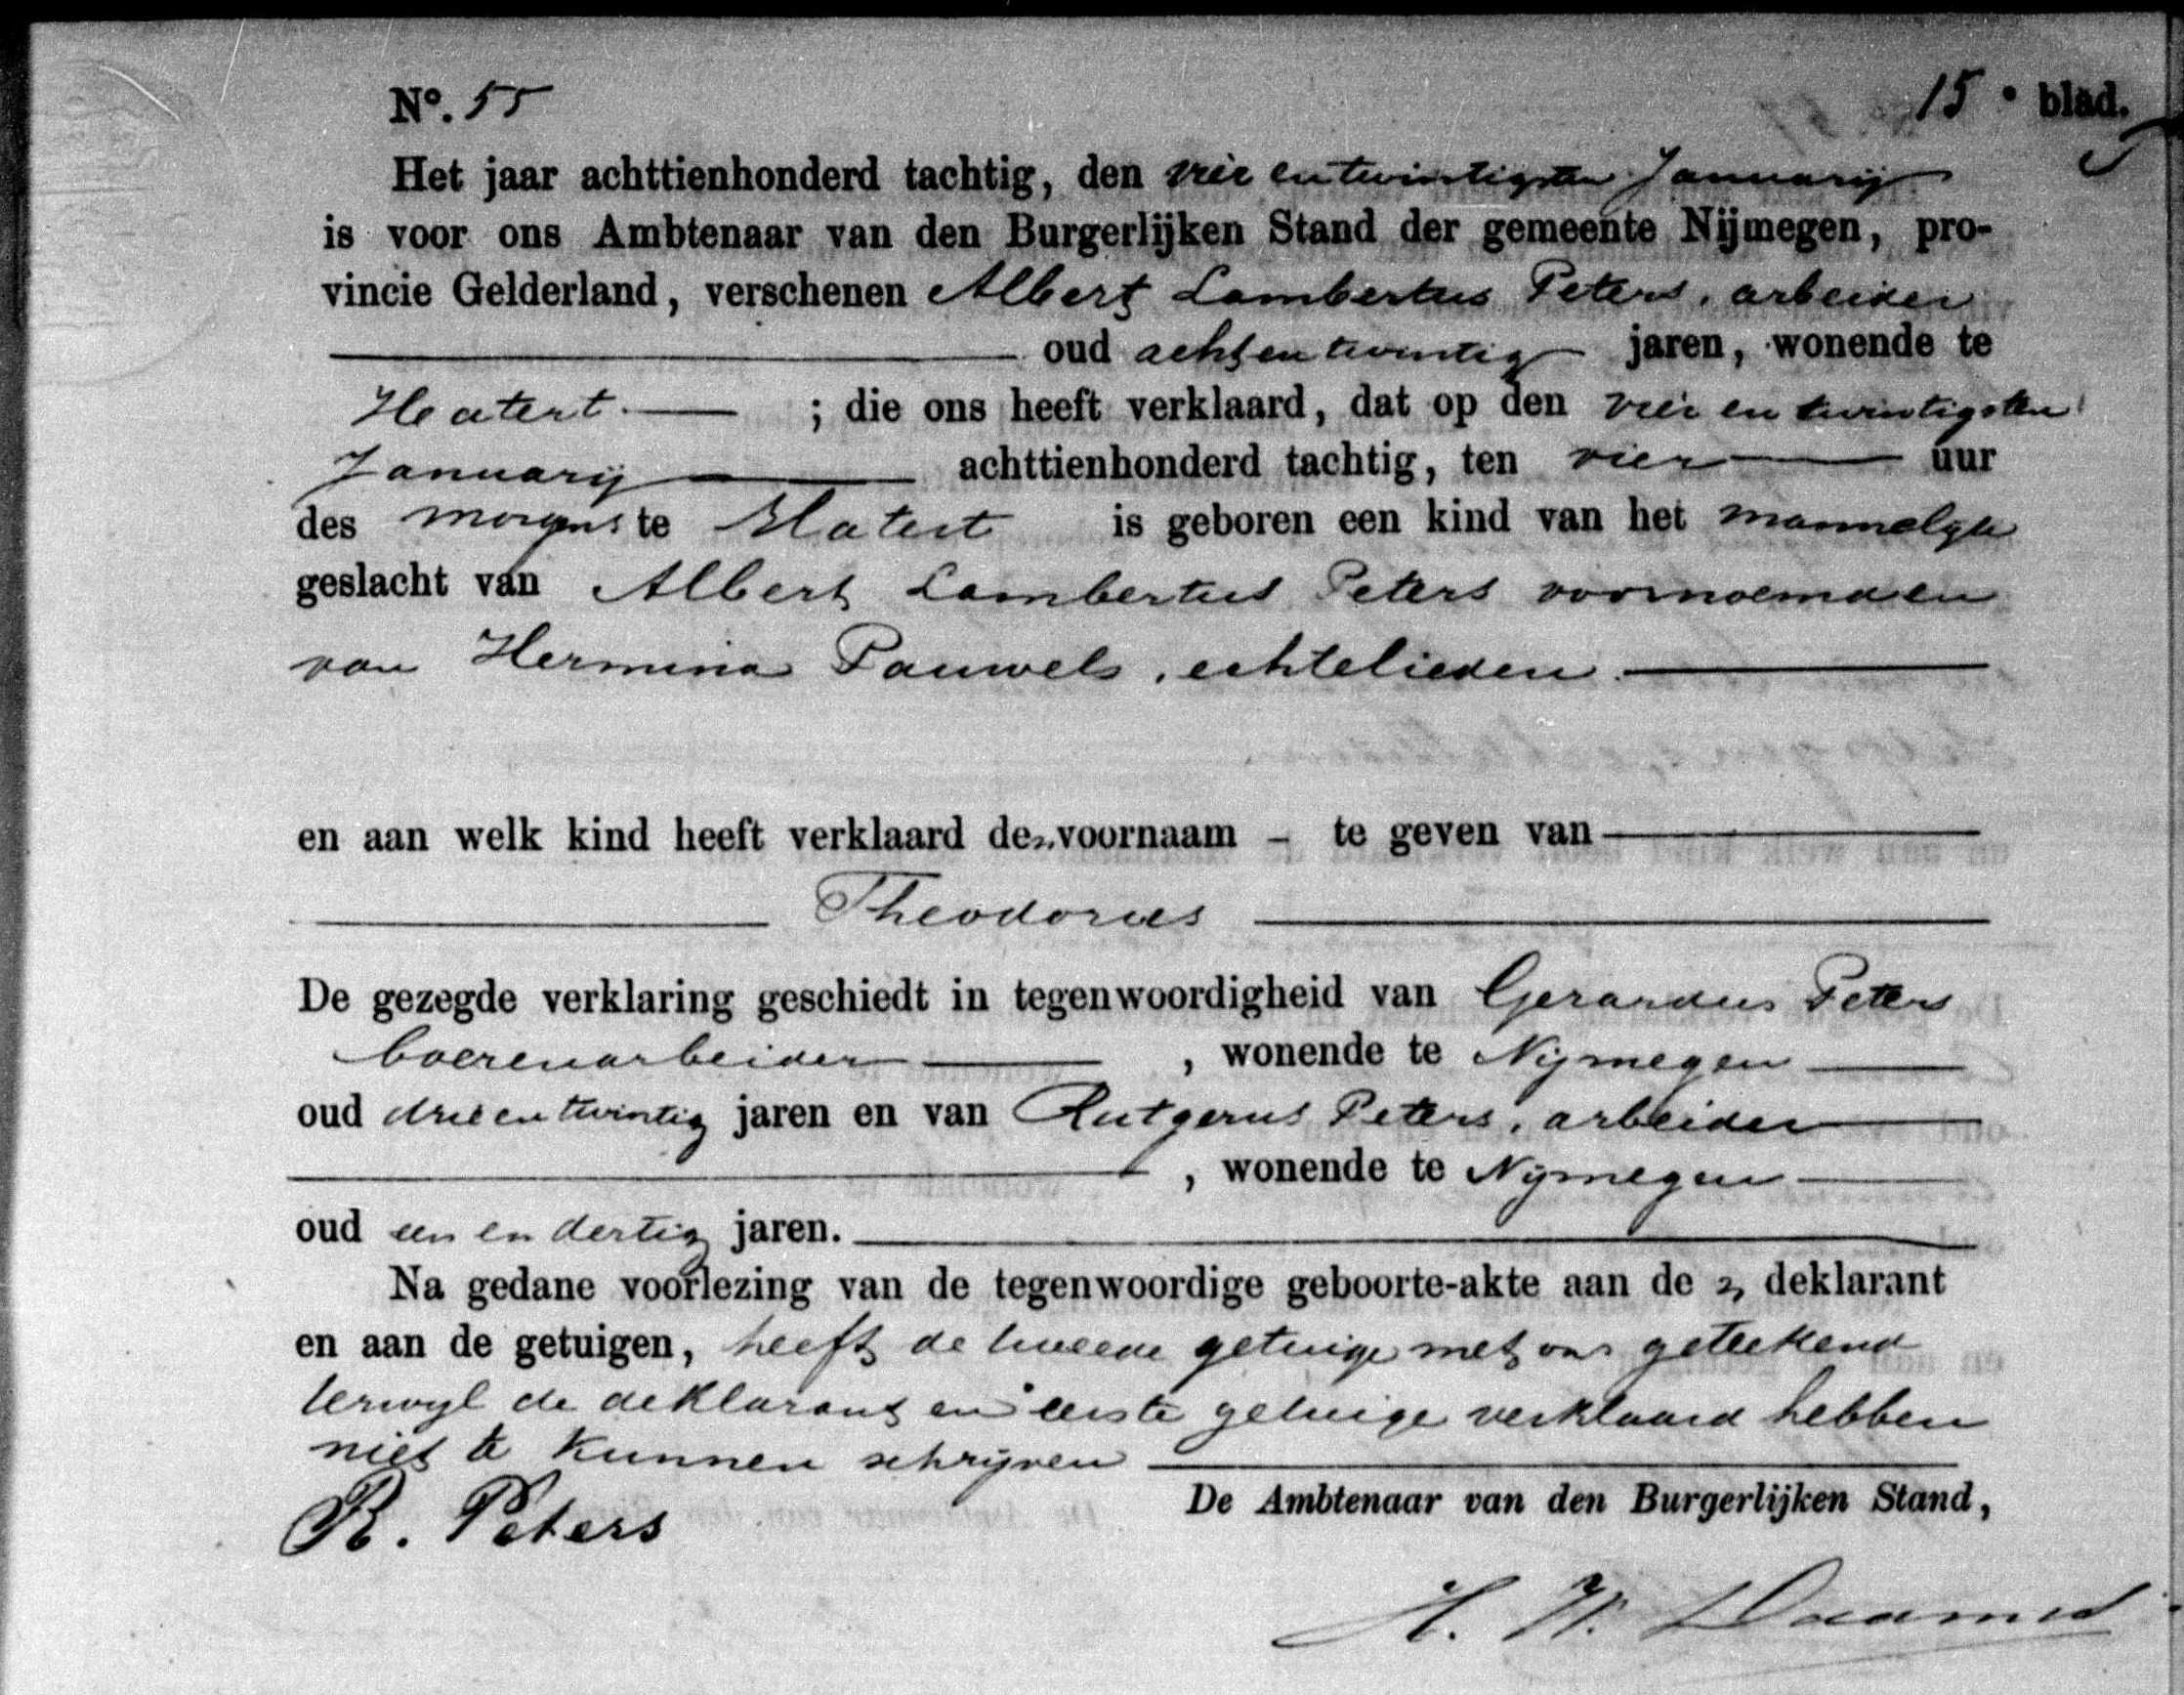 Nº. 55
15e blad.
Het jaar achttienhonderd tachtig, den vier en twintigsten Januarij
is voor ons Ambtenaar van den Burgerlijken Stand der gemeente Nijmegen, pro-
vincie Gelderland, verschenen Albert Lambertus Peters, arbeider
oud acht en twintig jaren, wonende te
Hatert ; die ons heeft verklaard, dat op den vier en twintigsten
Januarij achttienhonderd tachtig, ten vier uur
des morgens te Hatert is geboren een kind van het mannelijke
geslacht van Albert Lambertus Peters voornoemd en
van Hermina Pauwels, echtelieden.
en aan welk kind heeft verklaard de voornaam - te geven van
Theodorus
De gezegde verklaring geschiedt in tegenwoordigheid van Gerardus Peters
boerenarbeider , wonende te Nijmegen
oud drie en twintig jaren en van Rutgerus Peters, arbeider
, wonende te Nijmegen
oud een en dertig jaren.
Na gedane voorlezing van de tegenwoordige geboorte-akte aan de deklarant
en aan de getuigen, heeft de tweede getuige met ons geteekend
terwyl de deklarant en eerste getuige verklaard hebben
niet te kunnen schrijven
De Ambtenaar van den Burgerlijken Stand,
R. Peters
H. W.